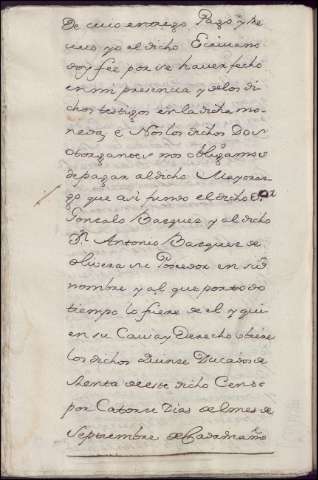 De cuio entrego Pago y Re
civo yo el dicho Escrivano
doy fee por se haver fecho
en mi presencia y de los di
chos testigos en la dicha mo
neda, e Nos los dichos Dos
otorgantes nos obligamos
de pagar al dicho Mayoraz
go que asi fundo el dicho
Gonsalo Basques y al dicho
Dn Antonio Basques de
olivera su Posedor en su
nombre y al que por todo
tiempo lo fuere de el y qui
en su Causa y Derecho obiere
los dichos Quinse Ducados de
Renta de este dicho Censo
por Catorse Dias del mes de
Septiembre de Cada un año